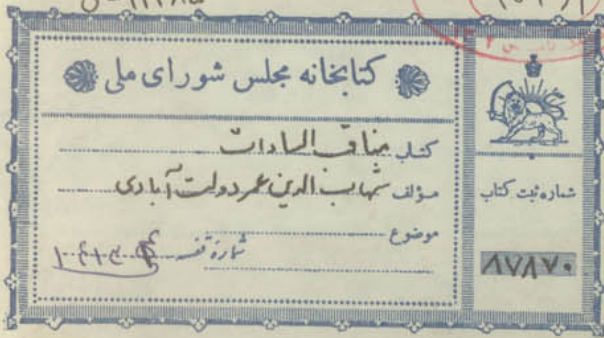 کتابخانه مجلس شورای ملی
کتاب مناقب السادات
مؤلف شهاب الدین عمر دولت آبادی
موضوع
شماره قفسه
شماره ثبت کتاب
۸۷۸۷۰